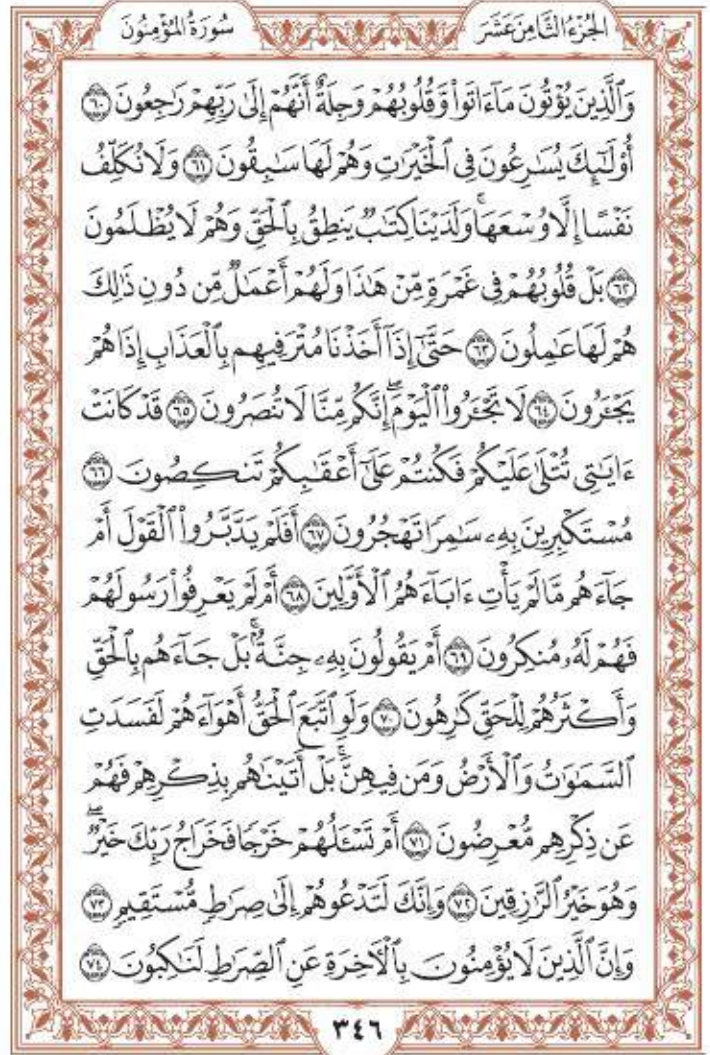 الجُزْءُ الثَّامِنَ عَشَرَ
سُورَةُ المُؤْمِنُون
وَٱلَّذِينَ يُؤْتُونَ مَآءَاتَوا۟ وَّقُلُوبُهُمْ وَجِلَةٌ أَنَّهُمْ إِلَىٰ رَبِّهِمْ رَٰجِعُونَ ٦٠
أُو۟لَٰٓئِكَ يُسَٰرِعُونَ فِى ٱلْخَيْرَٰتِ وَهُمْ لَهَا سَٰبِقُونَ ٦١ وَلَا نُكَلِّفُ
نَفْسًا إِلَّا وُسْعَهَا ۚ وَلَدَيْنَا كِتَٰبٌ يَنطِقُ بِٱلْحَقِّ وَهُمْ لَا يُظْلَمُونَ
٦٢ بَلْ قُلُوبُهُمْ فِى غَمْرَةٍ مِّنْ هَٰذَا وَلَهُمْ أَعْمَٰلٌ مِّن دُونِ ذَٰلِكَ
هُمْ لَهَا عَٰمِلُونَ ٦٣ حَتَّىٰٓ إِذَآ أَخَذْنَا مُتْرَفِيهِم بِٱلْعَذَابِ إِذَا هُمْ
يَجْـَٔرُونَ ٦٤ لَا تَجْـَٔرُوا۟ ٱلْيَوْمَ ۖ إِنَّكُم مِّنَّا لَا تُنصَرُونَ ٦٥ قَدْ كَانَتْ
ءَايَٰتِى تُتْلَىٰ عَلَيْكُمْ فَكُنتُمْ عَلَىٰٓ أَعْقَٰبِكُمْ تَنكِصُونَ ٦٦
مُسْتَكْبِرِينَ بِهِۦ سَٰمِرًا تَهْجُرُونَ ٦٧ أَفَلَمْ يَدَّبَّرُوا۟ ٱلْقَوْلَ أَمْ
جَآءَهُم مَّا لَمْ يَأْتِ ءَابَآءَهُمُ ٱلْأَوَّلِينَ ٦٨ أَمْ لَمْ يَعْرِفُوا۟ رَسُولَهُمْ
فَهُمْ لَهُۥ مُنكِرُونَ ٦٩ أَمْ يَقُولُونَ بِهِۦ جِنَّةٌۢ ۚ بَلْ جَآءَهُم بِٱلْحَقِّ
وَأَكْثَرُهُمْ لِلْحَقِّ كَٰرِهُونَ ٧٠ وَلَوِ ٱتَّبَعَ ٱلْحَقُّ أَهْوَآءَهُمْ لَفَسَدَتِ
ٱلسَّمَٰوَٰتُ وَٱلْأَرْضُ وَمَن فِيهِنَّ ۚ بَلْ أَتَيْنَٰهُم بِذِكْرِهِمْ فَهُمْ
عَن ذِكْرِهِم مُّعْرِضُونَ ٧١ أَمْ تَسْـَٔلُهُمْ خَرْجًا فَخَرَاجُ رَبِّكَ خَيْرٌ ۖ
وَهُوَ خَيْرُ ٱلرَّٰزِقِينَ ٧٢ وَإِنَّكَ لَتَدْعُوهُمْ إِلَىٰ صِرَٰطٍ مُّسْتَقِيمٍ ٧٣
وَإِنَّ ٱلَّذِينَ لَا يُؤْمِنُونَ بِٱلْءَاخِرَةِ عَنِ ٱلصِّرَٰطِ لَنَٰكِبُونَ ٧٤
٣٤٦